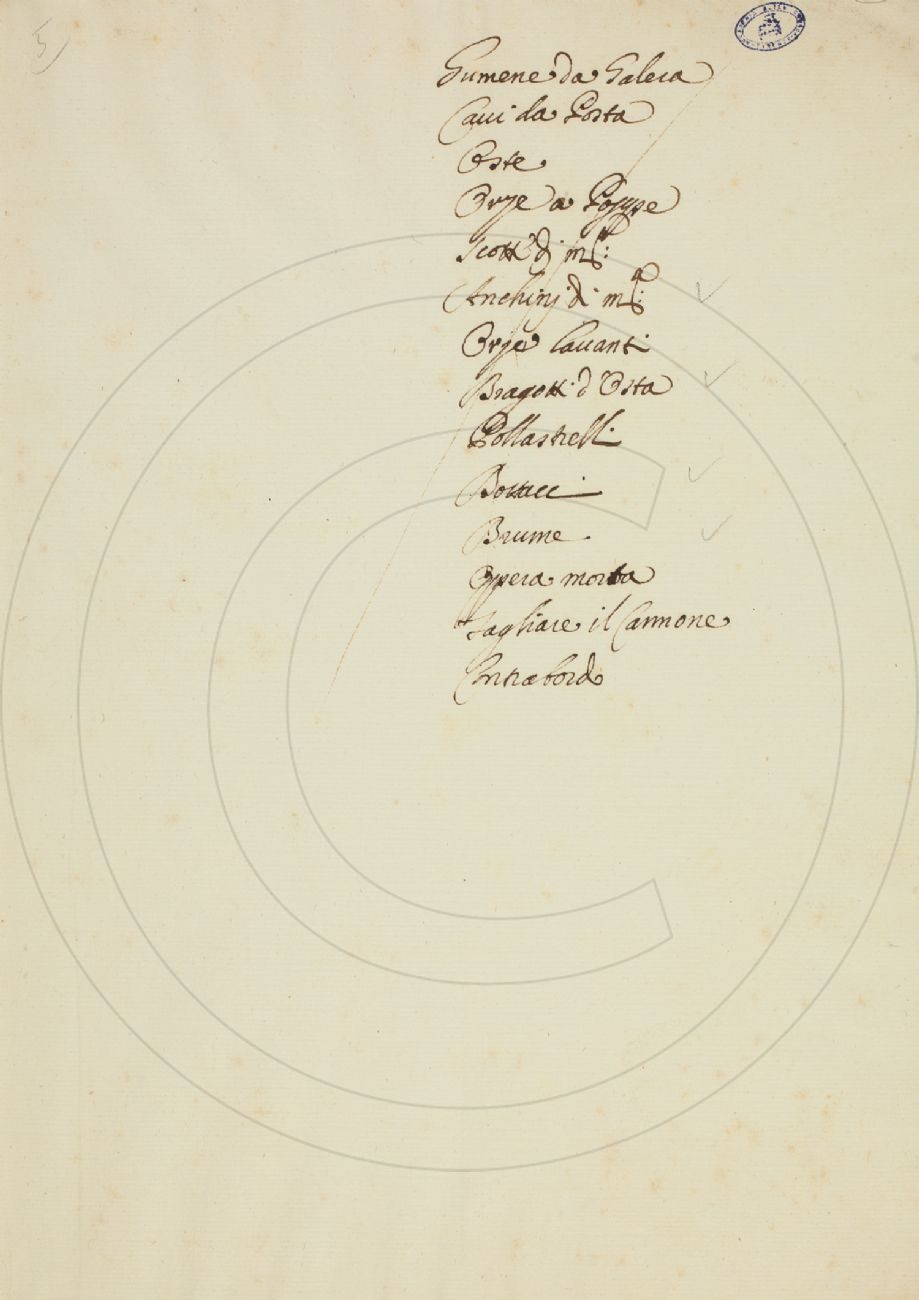 5
Gumene da Galera
Caui da Posta
Oste
Orze a Poppe
Scotte di
Anchini di
Orze Dauanti
Bragotti d'Osta
Pollastrelli
Brume
Opera morta
Tagliare il Cannone
Contrabordo